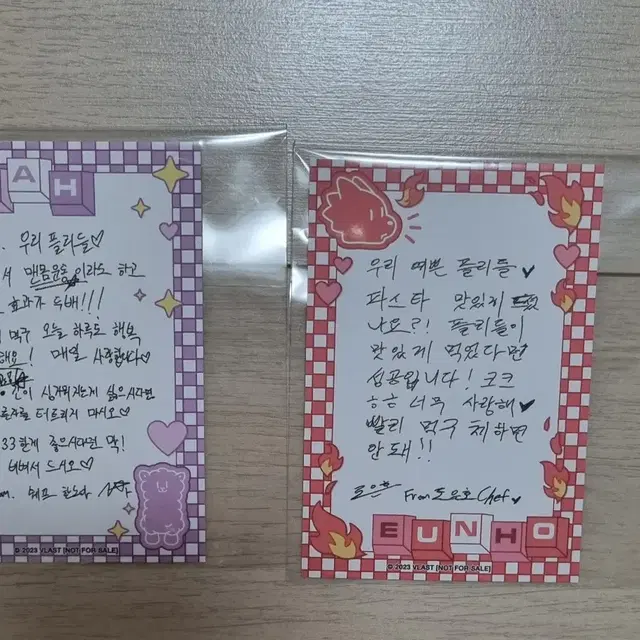 AH
우리 플리들♡
서 맨몸운동이라도 하고
효과가 두배!!!
먹구 오늘 하루도 행복
해요! 매일 사랑합니다♡
이 싱거워지는게 싫으시다면
터트리지 마시오♡
33하게 좋으시다면 막!
비벼서 드시오♡
쉐프 한노아
© 2023 VLAST [NOT FOR SALE]
우리 예쁜 플리들
파스타 맛있게
나요?! 플리들이
맛있게 먹었다면
성공입니다! 크크
ㅎㅎ 너무 사랑해
빨리 먹구 체하면
안돼!!
도은호 From 도은호 Chef
EUNHO
© 2023 VLAST [NOT FOR SALE]